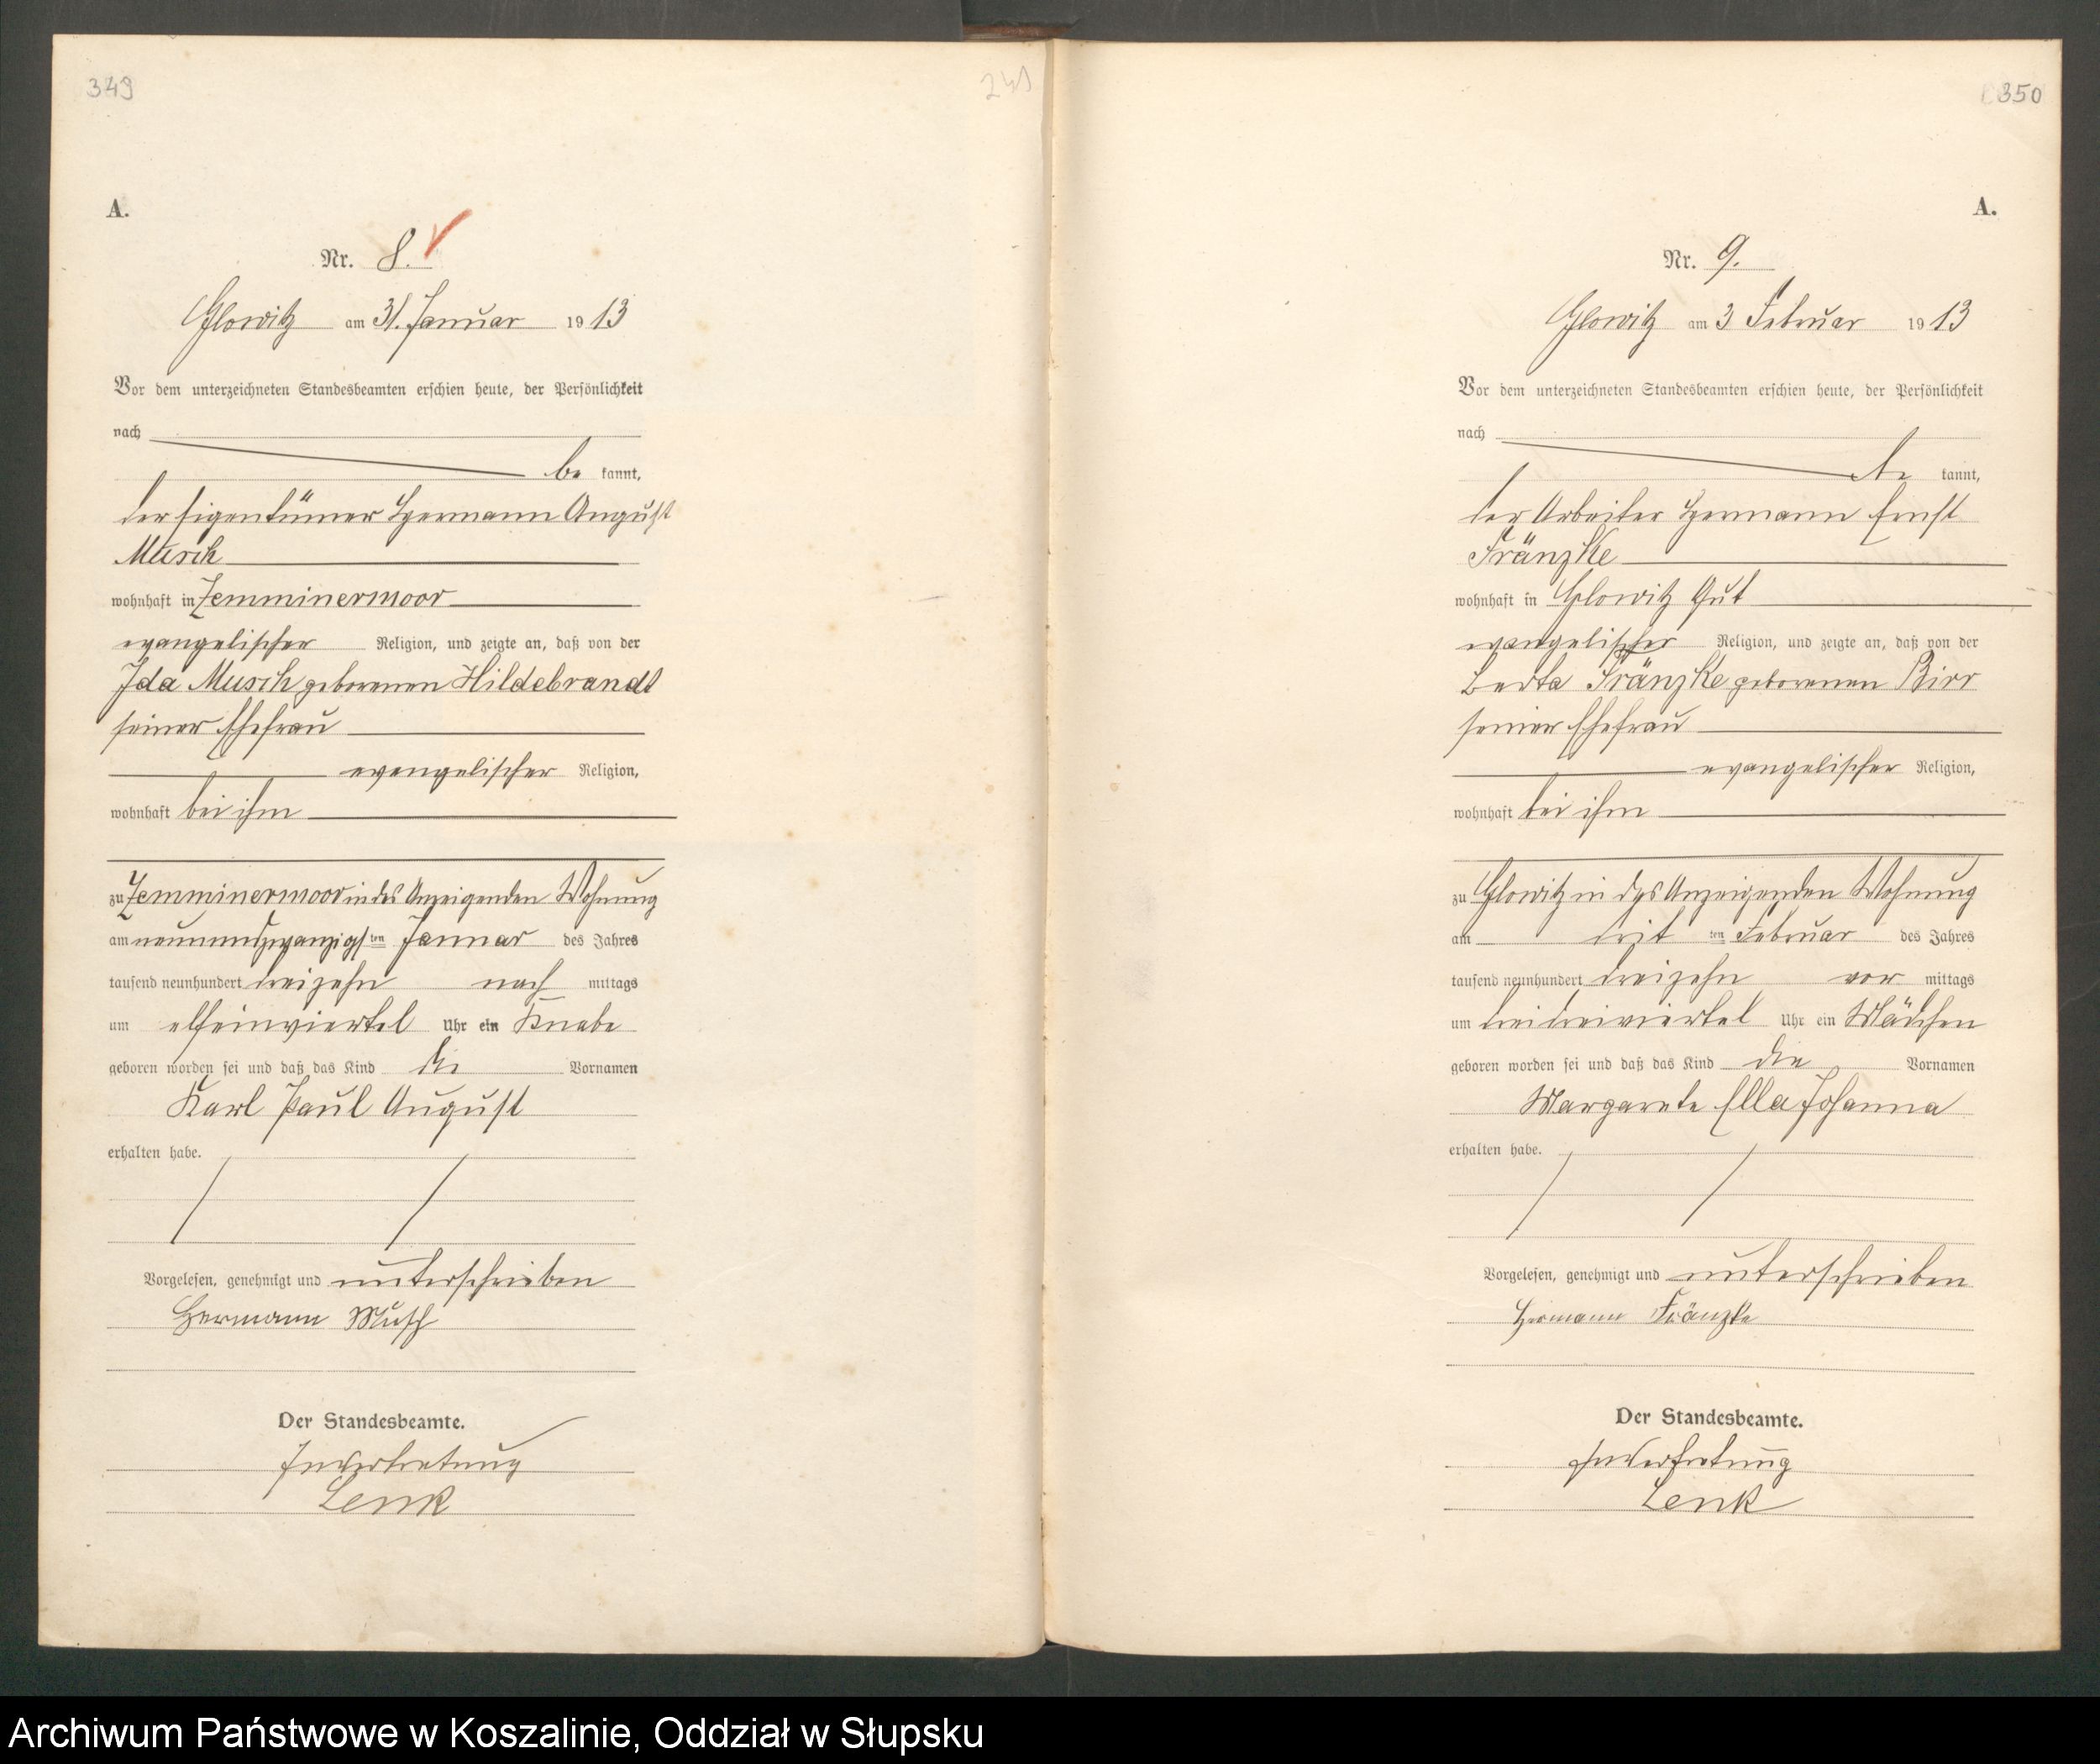 349
A.
Nr. 8.
Glowitz am 31. Januar 1913
Vor dem unterzeichneten Standesbeamten erschien heute, der Persönlichkeit
nach
be kannt,
der Eigentümer Hermann August
Musch
wohnhaft in Zemminermoor
evangelischer Religion, und zeigte an, daß von der
Ida Musch geborenen Hildebrandt
seiner Ehefrau
evangelischer Religion,
wohnhaft bei ihm
zu Zemminermoor in des Anzeigenden Wohnung
am neunundzwanzigsten Januar des Jahres
tausend neunhundert dreizehn nach mittags
um elfeinviertel Uhr ein Knabe
geboren worden sei und daß das Kind die Vornamen
Karl Paul August
erhalten habe.
Vorgelesen, genehmigt und unterschrieben
Hermann Musch
Der Standesbeamte.
In Vertretung
Lenk
350
A.
Nr. 9.
Glowitz am 3 Februar 1913
Vor dem unterzeichneten Standesbeamten erschien heute, der Persönlichkeit
nach
be kannt,
der Arbeiter Hermann Ernst
Fränzke
wohnhaft in Glowitz Gut
evangelischer Religion, und zeigte an, daß von der
Berta Fränzke geborenen Birr
seiner Ehefrau
evangelischer Religion,
wohnhaft bei ihm
zu Glowitz in des Anzeigenden Wohnung
am dritten Februar des Jahres
tausend neunhundert dreizehn vor mittags
um dreidreiviertel Uhr ein Mädchen
geboren worden sei und daß das Kind die Vornamen
Margarete Ella Johanna
erhalten habe.
Vorgelesen, genehmigt und unterschrieben
Hermann Fränzke
Der Standesbeamte.
In Vertretung
Lenk
Archiwum Państwowe w Koszalinie, Oddział w Słupsku